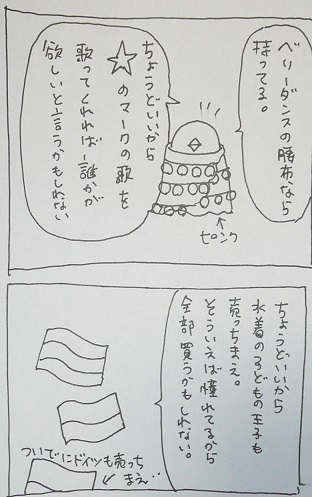 ベリーダンスの腰布なら
持ってる。
ちょうどいいから
☆のマークの歌を
歌ってくれれば誰かが
欲しいと言うかもしれない
ピンク
ちょうどいいから
水着の子どもの王子も
売っちまえ。
そういえば憧れてるから
全部買うかもしれない。
ついでにドイツも売っち
まえ…